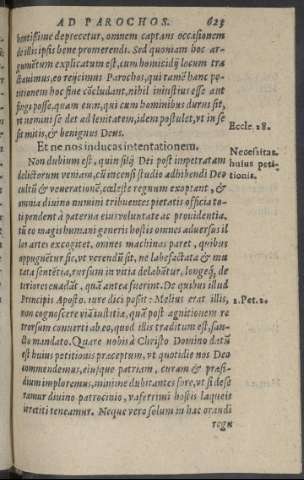 AD PAROCHOS. 623
hontißime deprecetur, omnem captans occasionem
de illis ipsis bene promerendi. Sed quoniam hoc ar-
gumẽtum explicatum est, cum homicidij locum tra
ctauimus, eo reijcimus Parochos, qui tamẽ hanc pe-
titionem hoc fine cõcludant, nihil iniustius esse aut
fingi posse, quam eum, qui cum hominibus durus sit,
vt nemini se det ad lenitatem, idem postulet, vt in se
sit mitis, & benignus Deus.
Eccle. 28.
Et ne nos inducas in tentationem.
Necessitas
huius peti-
tionis.
Non dubium est, quin filij Dei post impetratam
delictorum veniam, cũ incensi studio adhibendi Deo
cultũ & venerationẽ, cœleste regnum exoptant, &
omnia diuino numini tribuentes pietatis officia to-
ti pendent à paterna eius voluntate ac prouidentia,
tũ eo magis humani generis hostis omnes aduersus il
los artes excogitet, omnes machinas paret, quibus
oppugnẽtur sic, vt verendũ sit, ne labefactata & mu
tata sẽtẽtia, rursum in vitia delabãtur, longeq́; de
teriores euadãt, quã antea fuerint. De quibus illud
Principis Aposto. iure dici posit: Melius erat illis,
2. Pet. 2.
non cognoscere viã iustitiæ, quã post agnitionem re
trorsum conuerti ab eo, quod illis traditum est, san-
cto mandato. Quare nobis à Christo Domino datũ
est huius petitionis præceptum, vt quotidie nos Deo
commendemus, eiusque patriam, curam & præsi-
dium imploremus, minime dubitantes fore, vt si dese
ramur diuino patrocinio, vaferrimi hostis laqueis
irretiti teneamur. Neque vero solum in hac orandi
regu